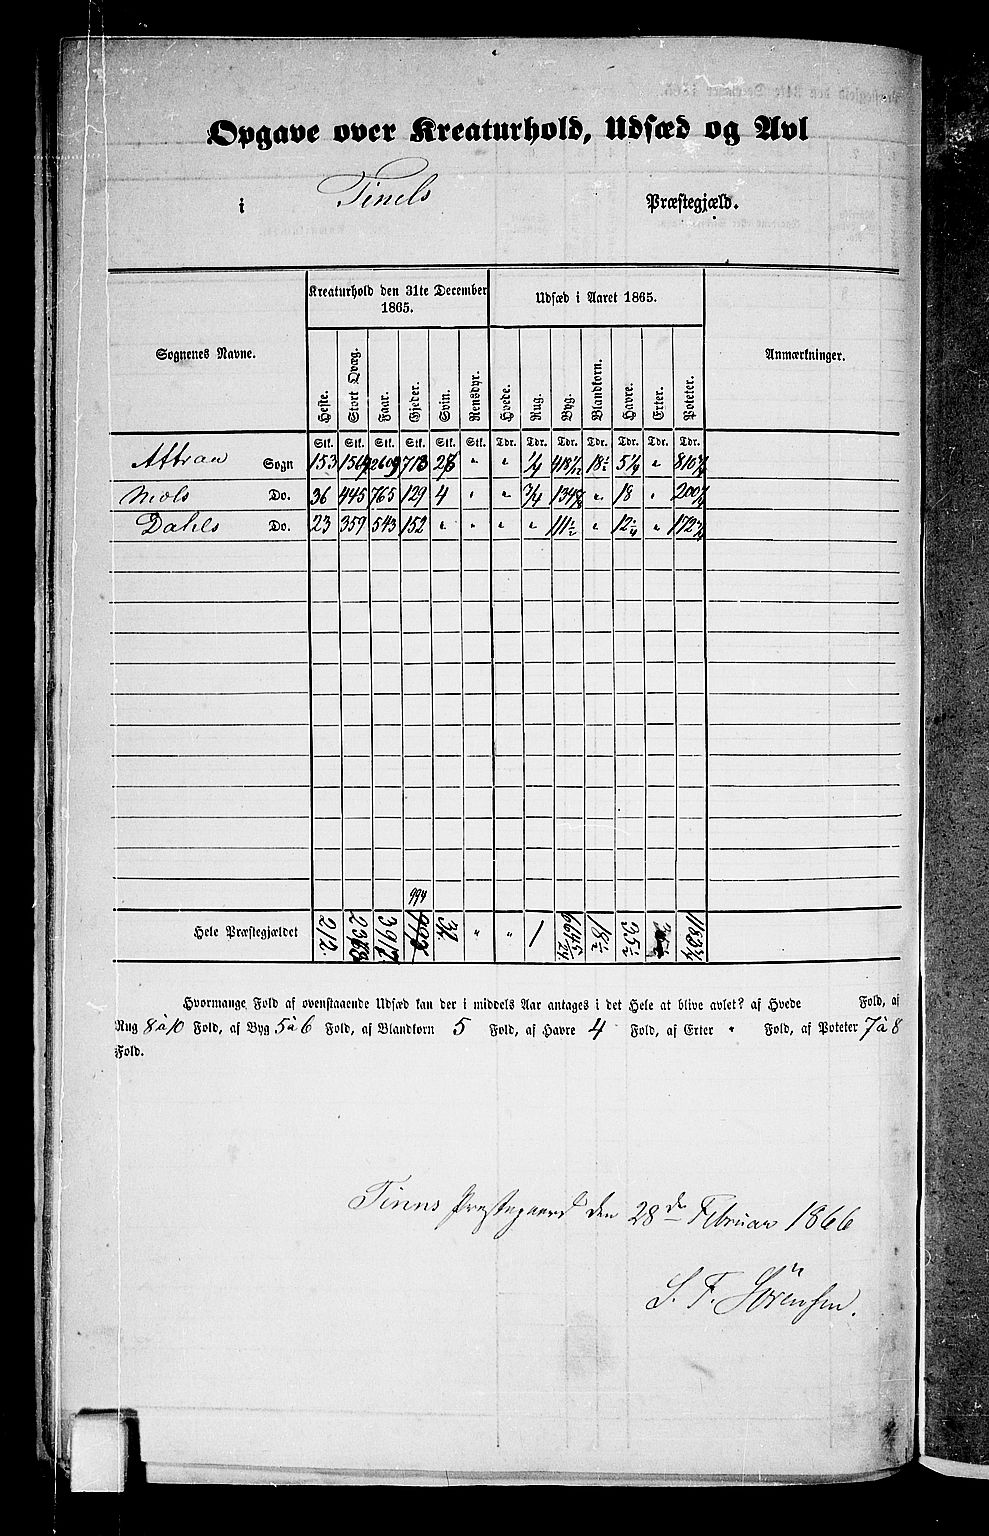 Opgave over Kreaturhold, Udsæd og Avl
i Tinds Præstegjæld.
Kreaturhold den 31te December 1865. Udsæd i Aaret 1865.
Sognenes Navne. Heste. Stort Qvæg. Faar. Gjeder. Svin. Rensdyr. Hvede. Rug. Byg. Blandkorn. Havre. Erter. Poteter. Anmærkninger.
Stk. Stk. Stk. Stk. Stk. Stk. Tdr. Tdr. Tdr. Tdr. Tdr. Tdr. Tdr.
Attraa Sogn 153 1564 2609 713 28 " " 1/4 18 1/2 5 1/4 "
Mæls Do. 36 445 765 129 4 " " 3/4 " 18 "
Dahls Do. 23 359 543 152 " " " " 111 1/2 " "
994
Hele Præstegjældet 212 2368 3917 32 " " 1 18 1/2 35 1/2
Hvormange Fold af ovenstaaende Udsæd kan der i middels Aar antages i det Hele at blive avlet? af Hvede Fold, af
Rug 8 à 10 Fold, af Byg 5 à 6 Fold, af Blandkorn 5 Fold, af Havre 4 Fold, af Erter " Fold, af Poteter 7 à 8
Fold.
Tinns Præstegaard den 28de Februar 1866
S. F. Sörensen.